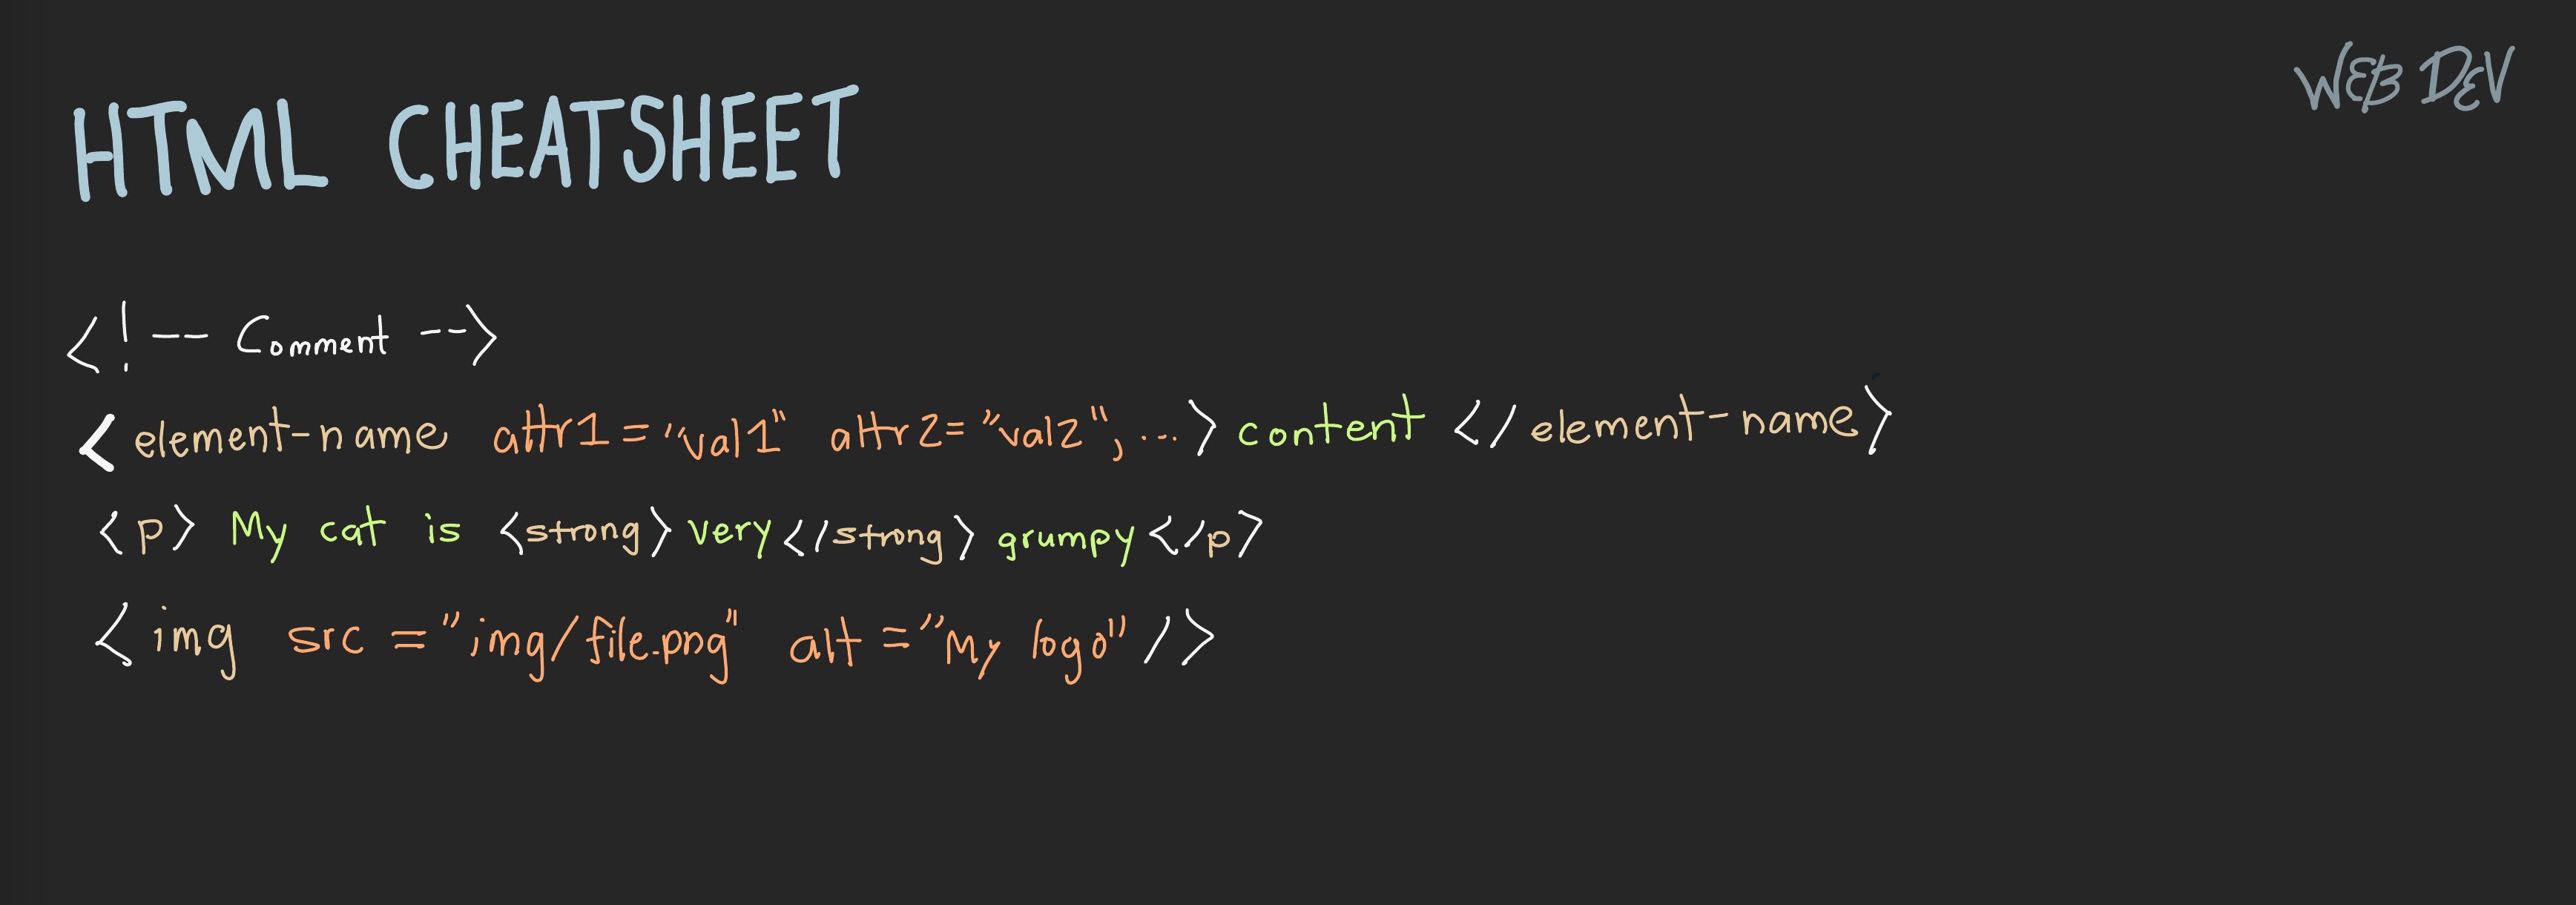 WEB DEV
HTML CHEATSHEET
<!-- Comment -->
<element-name attr1="val1" attr2="val2", ...> content </element-name>
<p> My cat is <strong> very </strong> grumpy </p>
<img src="img/file.png" alt="My logo" />